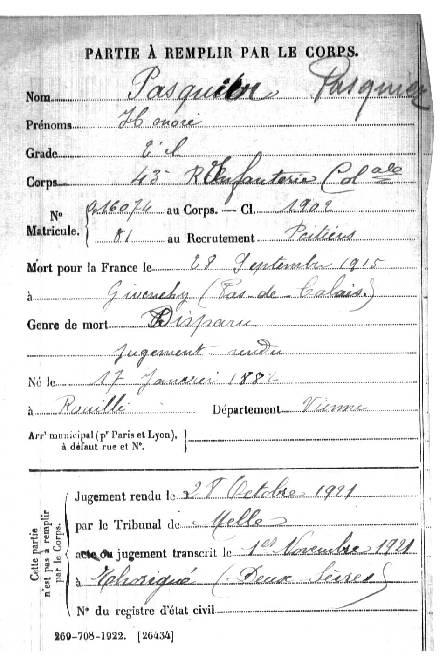 PARTIE À REMPLIR PAR LE CORPS.
Nom Pasquier
Prénoms Honoré
Grade 2e cl
Corps 43e R Infanterie Colale
No 016074 au Corps. — Cl. 1902
Matricule. 81 au Recrutement Poitiers
Mort pour la France le 28 Septembre 1915
à Givenchy (Pas de Calais)
Genre de mort Disparu
jugement rendu
Né le 17 Janvier 188
à Rouillé Département Vienne
Arrt municipal (pr Paris et Lyon),
à défaut rue et No.
Cette partie
n'est pas à remplir
par le Corps.
Jugement rendu le 28 Octobre 1921
par le Tribunal de Melle
acte ou jugement transcrit le 1er Novembre 1921
à Thorigné (Deux Sèvres)
No du registre d'état civil
269-708-1922. [26434]